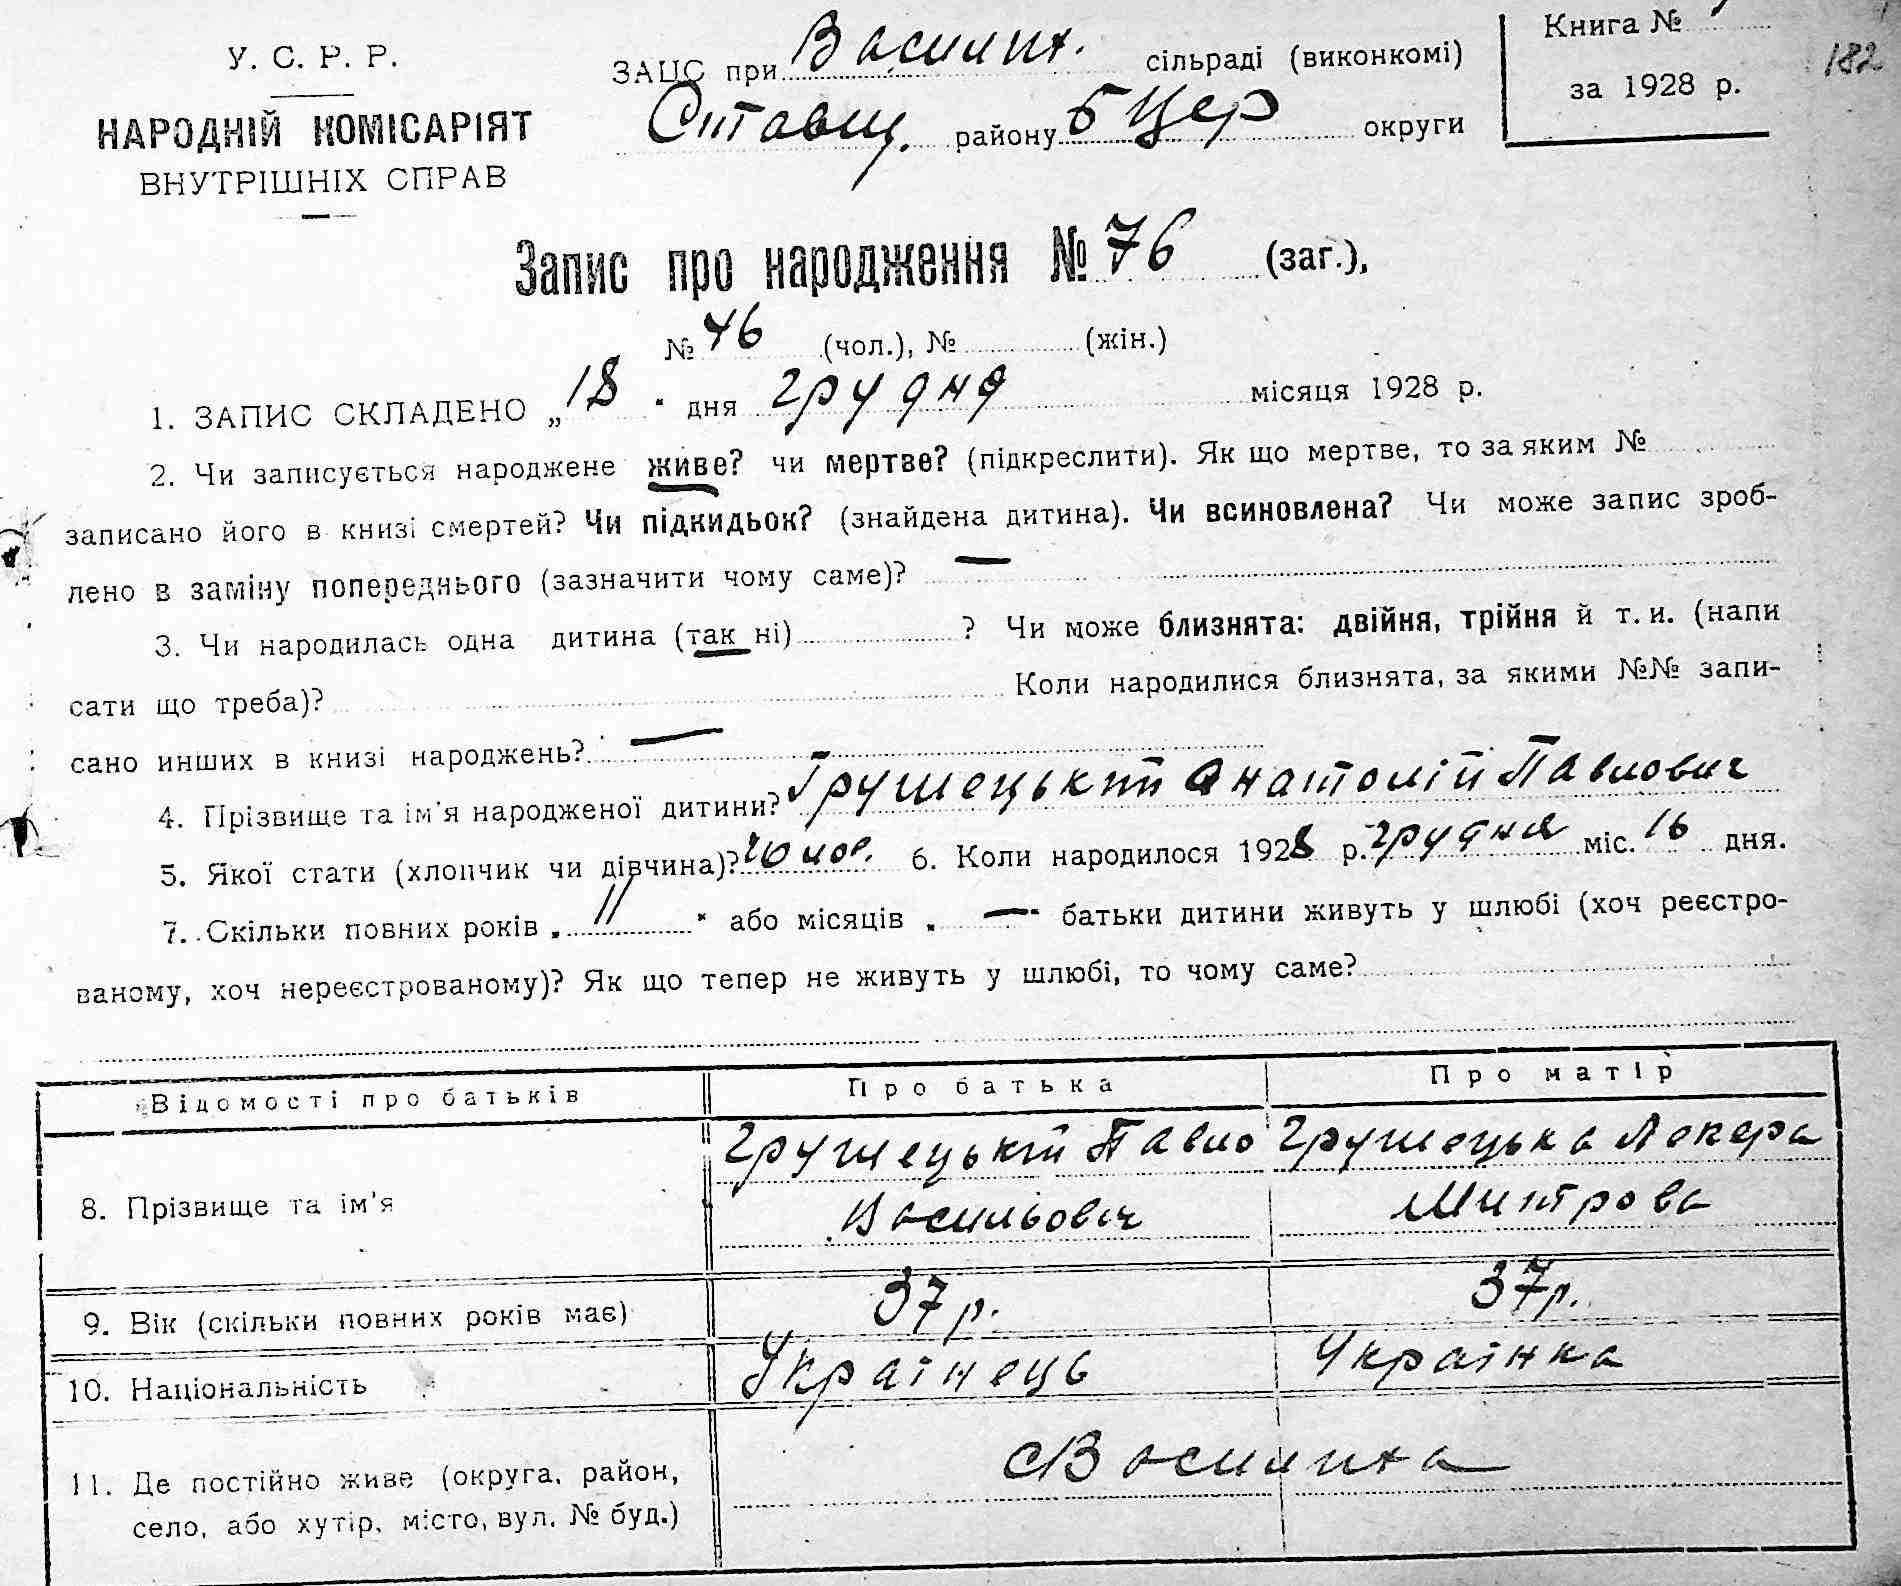 У. С. Р. Р.
НАРОДНІЙ КОМІСАРІЯТ
ВНУТРІШНІХ СПРАВ
ЗАЦС при Василих. сільраді (виконкомі)
Ставищ. району Б Цер округи
Книга №
за 1928 р.
182
Запис про народження № 76 (заг.),
№ 46 (чол.), № (жін.)
1. ЗАПИС СКЛАДЕНО „18" дня грудня місяця 1928 р.
2. Чи записується народжене живе? чи мертве? (підкреслити). Як що мертве, то за яким №
записано його в книзі смертей? Чи підкидьок? (знайдена дитина). Чи всиновлена? Чи може запис зроб-
лено в заміну попереднього (зазначити чому саме)? —
3. Чи народилась одна дитина (так ні) ? Чи може близнята: двійня, трійня й т. и. (напи
сати що треба)? Коли народилися близнята, за якими №№ запи-
сано инших в книзі народжень? —
4. Прізвище та ім'я народженої дитини? Грушецькій Анатолій Павлович
5. Якої стати (хлопчик чи дівчина)? 6. Коли народилося 1928 р. грудня міс. 16 дня.
7. Скільки повних років „11" або місяців „—" батьки дитини живуть у шлюбі (хоч реєстро-
ваному, хоч нереєстрованому)? Як що тепер не живуть у шлюбі, то чому саме?
Відомості про батьків Про батька Про матір
8. Прізвище та ім'я Грушецькій Павло Васильовіч Грушецька Лекера Митрова
9. Вік (скільки повних років має) 37 р. 37 р.
10. Національність Українець Українка
11. Де постійно живе (округа, район,
село, або хутір, місто, вул. № буд.) с Василиха